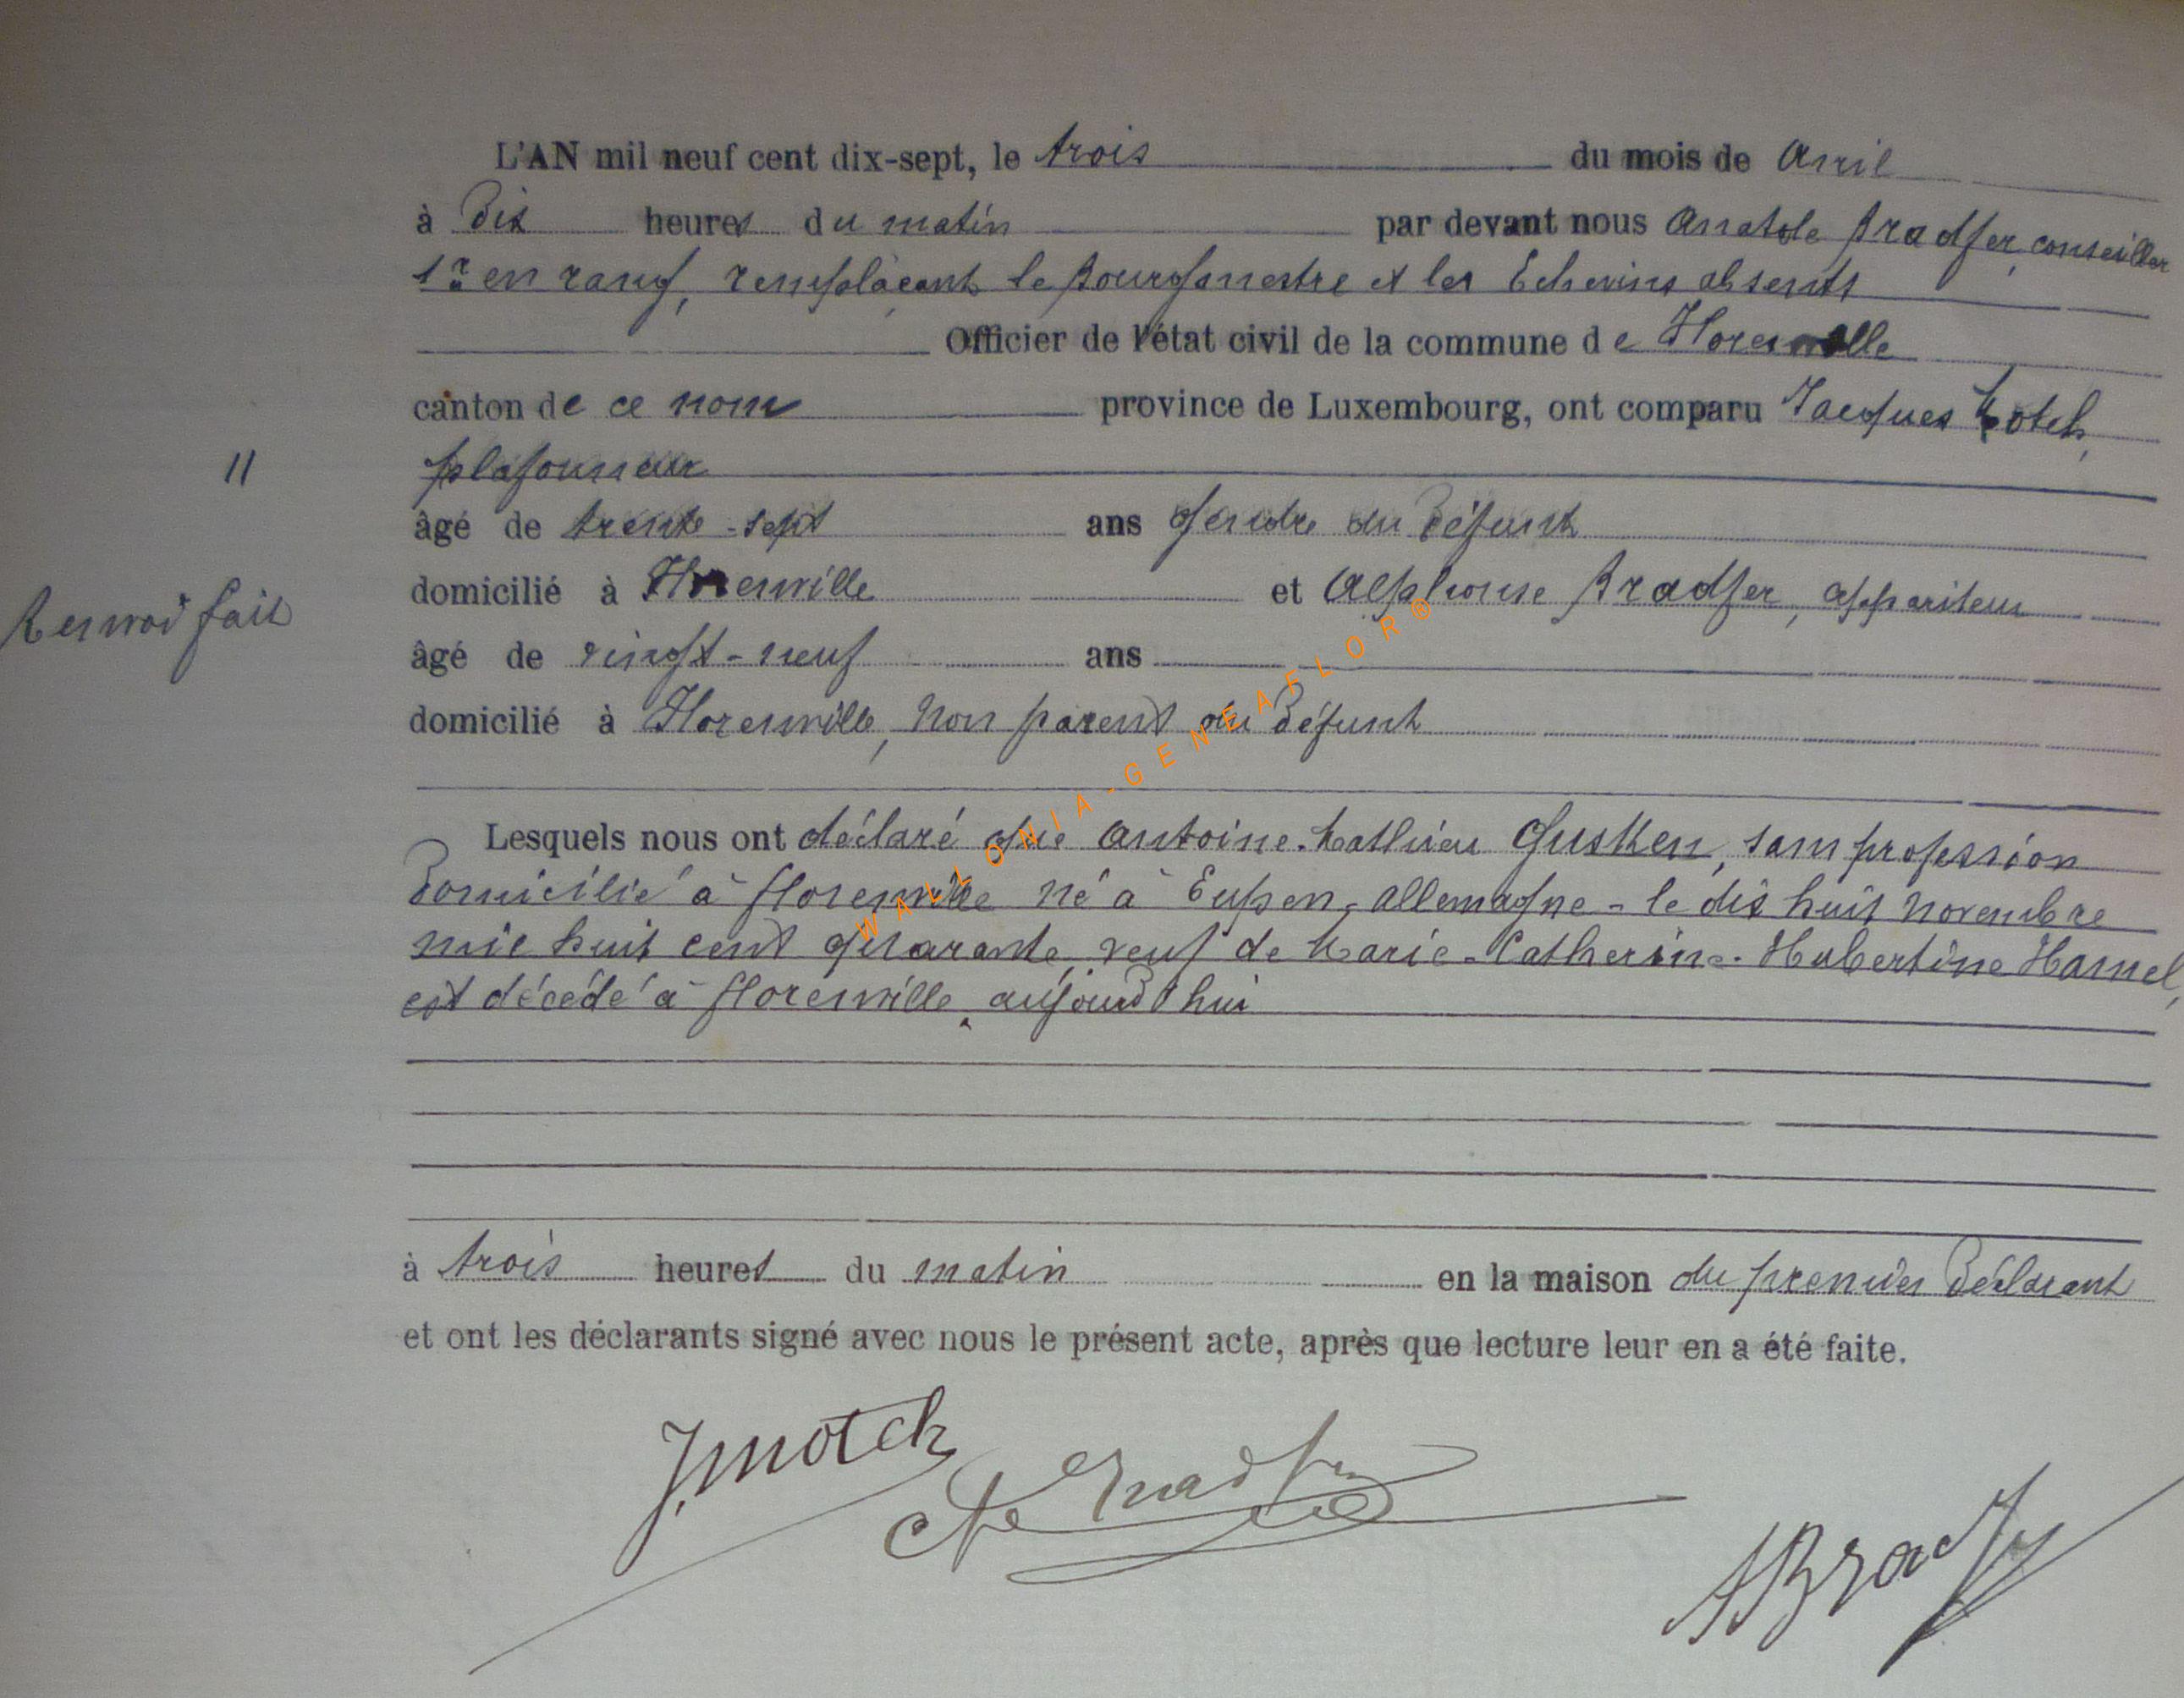 L'AN mil neuf cent dix-sept, le trois du mois de Avril
à Dix heures du matin par devant nous Anatole Bradfer, conseiller
1er en rang, remplaçant le Bourgmestre et les Echevins absents
Officier de l'état civil de la commune de Florenville
canton de ce nom province de Luxembourg, ont comparu Jacques Motch,
plafonneur
11
âgé de trente-sept ans gendre du Défunt
domicilié à Florenville et Alphonse Bradfer, appariteur
Renvoi fait
âgé de vingt-neuf ans
domicilié à Florenville, non parent du Défunt
Lesquels nous ont déclaré que Antoine-Mathieu Gusken, sans profession
Domicilié à Florenville né à Eupen, Allemagne - le dix huit novembre
mil huit cent quarante, veuf de Marie-Catherine-Hubertine Hamel,
est décédé à Florenville, aujourd'hui
à trois heures du matin en la maison du premier Déclarant
et ont les déclarants signé avec nous le présent acte, après que lecture leur en a été faite.
J. Motch
Bradfer
A Bradfer
WALLONIA-GENEAFLOR®